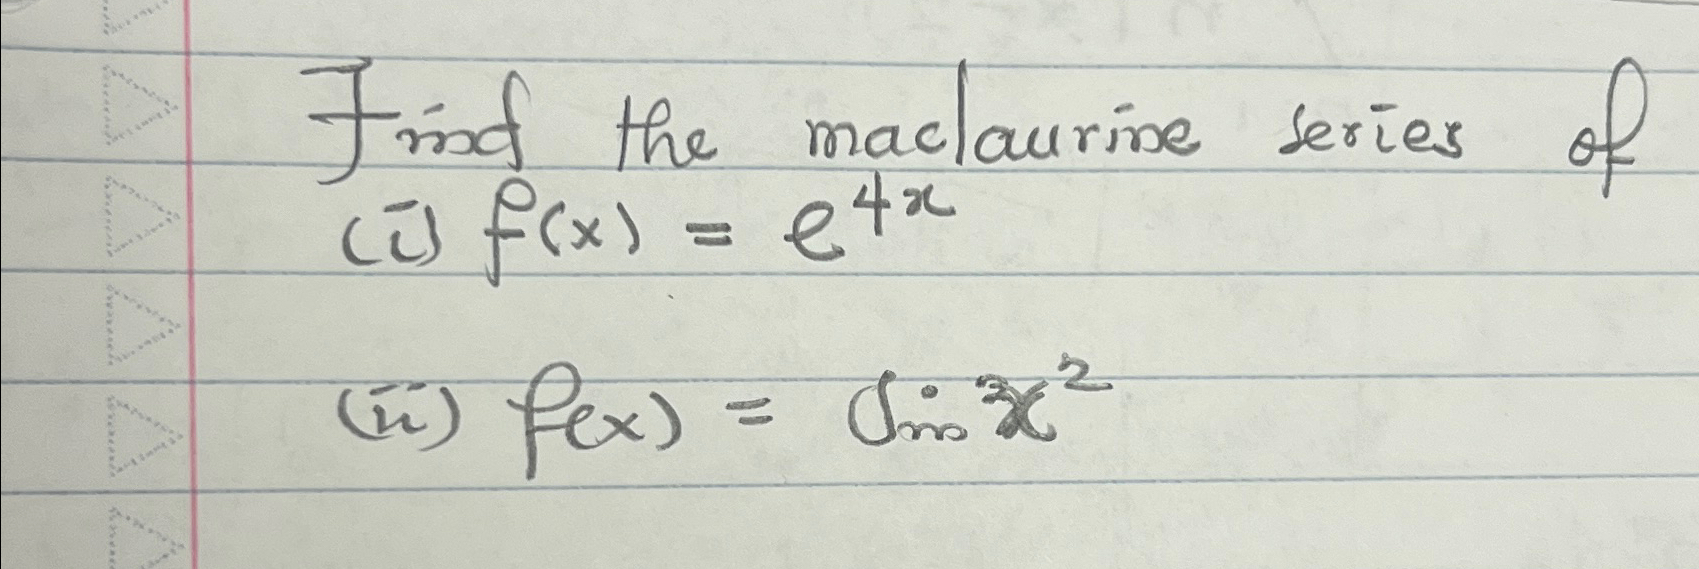 Find the maclaurine series of
(i) f(x) = e^{4x}
(ii) f(x) = Sin x^2